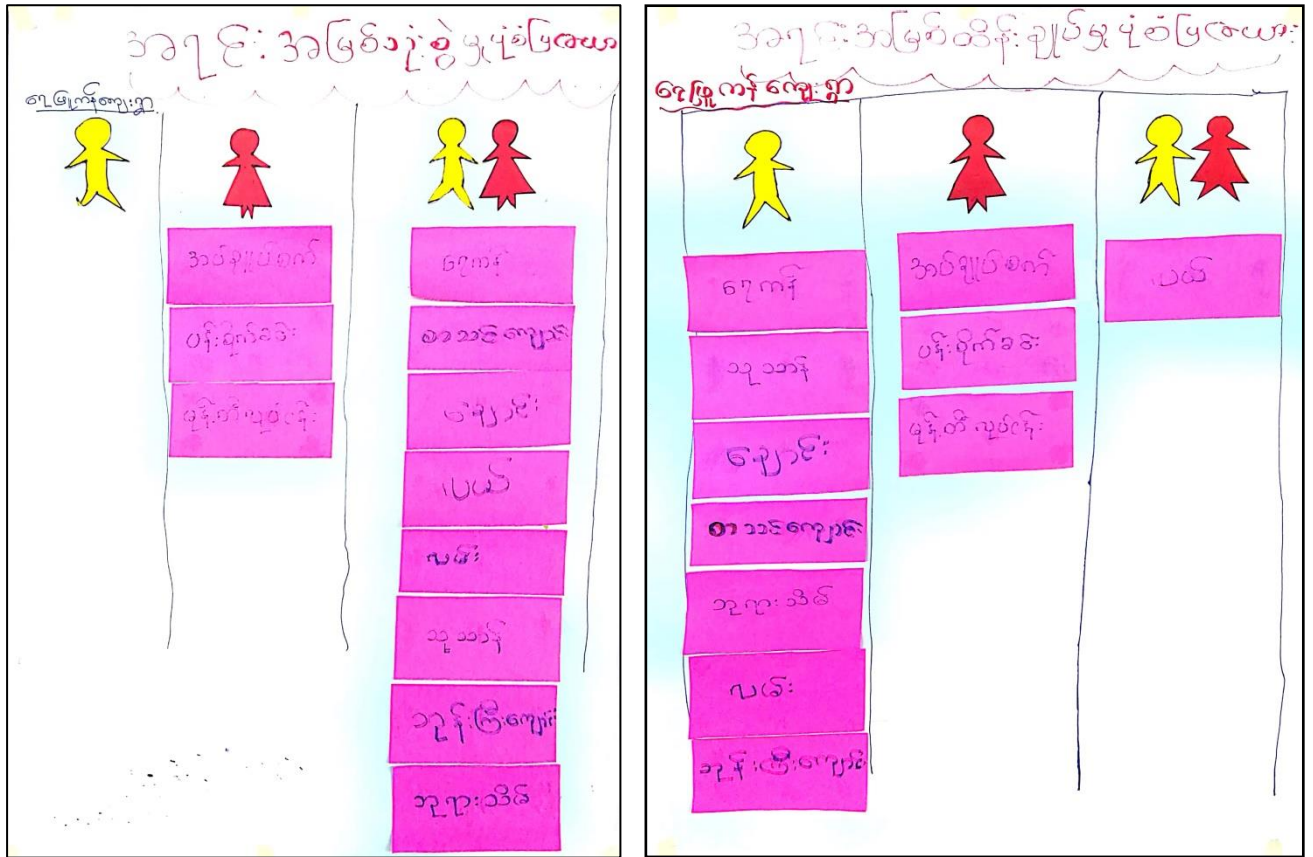 အရင်းအမြစ်သုံးစွဲမှုပုံစံပြဇယား
ရေဖြူကန်ကျေးရွာ
အပ်ချုပ်စက်
ပန်းစိုက်ခင်း
မုန့်တီလုပ်ငန်း
ရေကန်
စာသင်ကျောင်း
ချောင်း
ပယ်
လမ်း
သုသာန်
ဘုန်းကြီးကျောင်း
ဘုရားသိမ်
အရင်းအမြစ်ထိန်းချုပ်မှုပုံစံပြဇယား
ရေဖြူကန်ကျေးရွာ
ရေကန်
သုသာန်
ချောင်း
စာသင်ကျောင်း
ဘုရားသိမ်
လမ်း
ဘုန်းကြီးကျောင်း
အပ်ချုပ်စက်
ပန်းစိုက်ခင်း
မုန့်တီလုပ်ငန်း
ပယ်